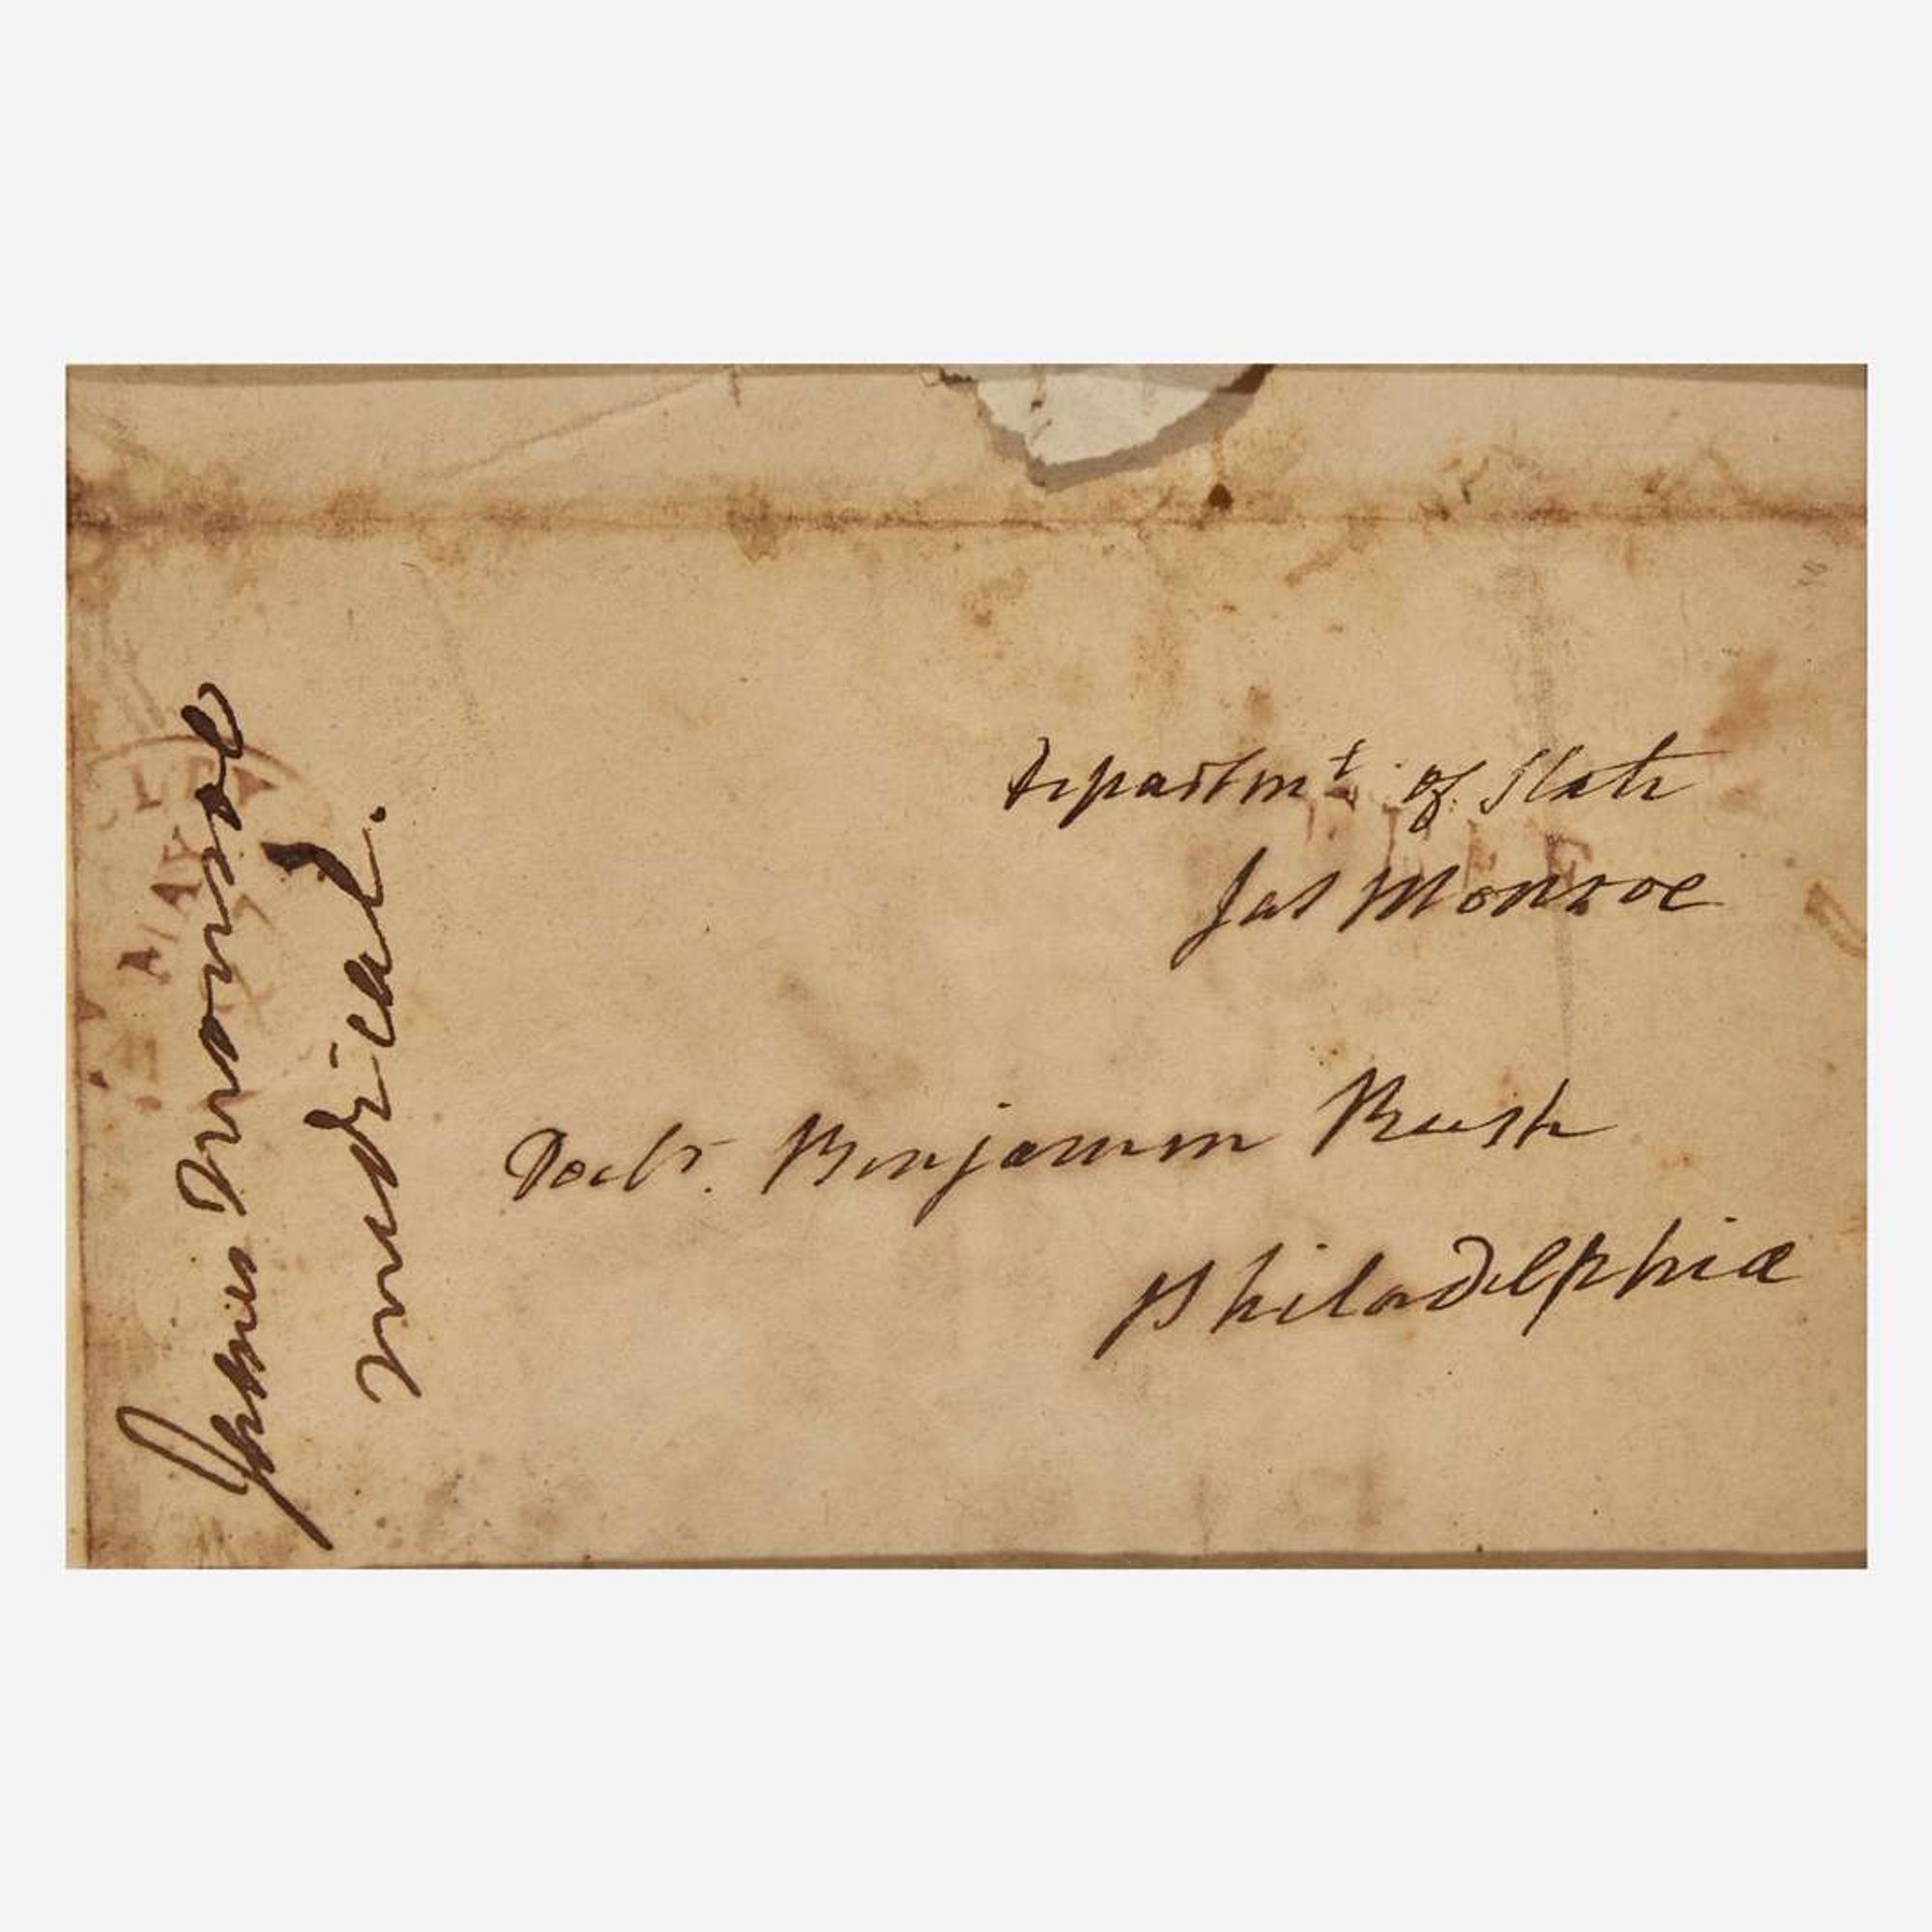 Departmt. of State
Jas Monroe
Doctr. Benjamin Rush
Philadelphia
James Monroe
medical.
FREE